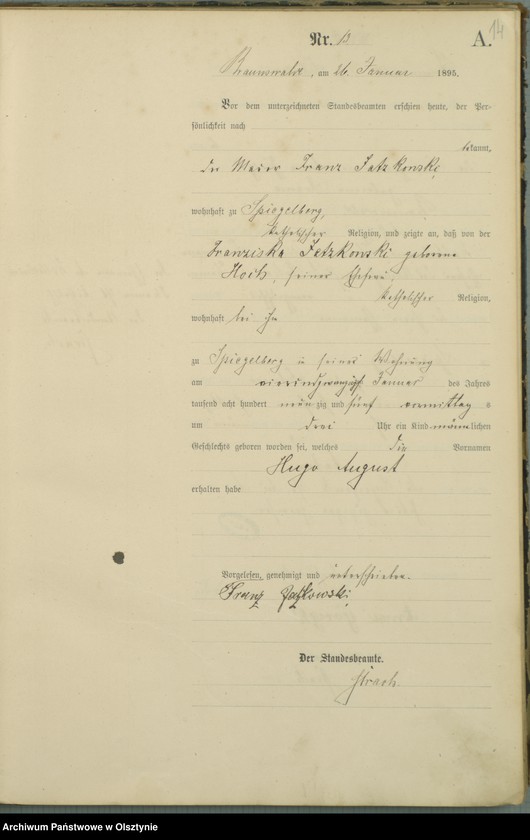 14
Nr. 13 A.
Braunswalde, am 26. Januar 1895.
Vor dem unterzeichneten Standesbeamten erschien heute, der Per-
sönlichkeit nach
bekannt,
der Maurer Franz Jatzkowski,
wohnhaft zu Spiegelberg,
katholischer Religion, und zeigte an, daß von der
Franziska Jatzkowski geborene
seiner Ehefrau
katholischer Religion,
wohnhaft bei ihm
zu Spiegelberg in seiner Wohnung
am vierundzwanzigsten Januar des Jahres
tausend acht hundert neunzig und fünf vormittag s
um drei Uhr ein Kind männlichen
Geschlechts geboren worden sei, welches die Vornamen
Hugo August
erhalten habe
Vorgelesen, genehmigt und unterschrieben.
Franz Jatzkowski
Der Standesbeamte.
Archiwum Państwowe w Olsztynie